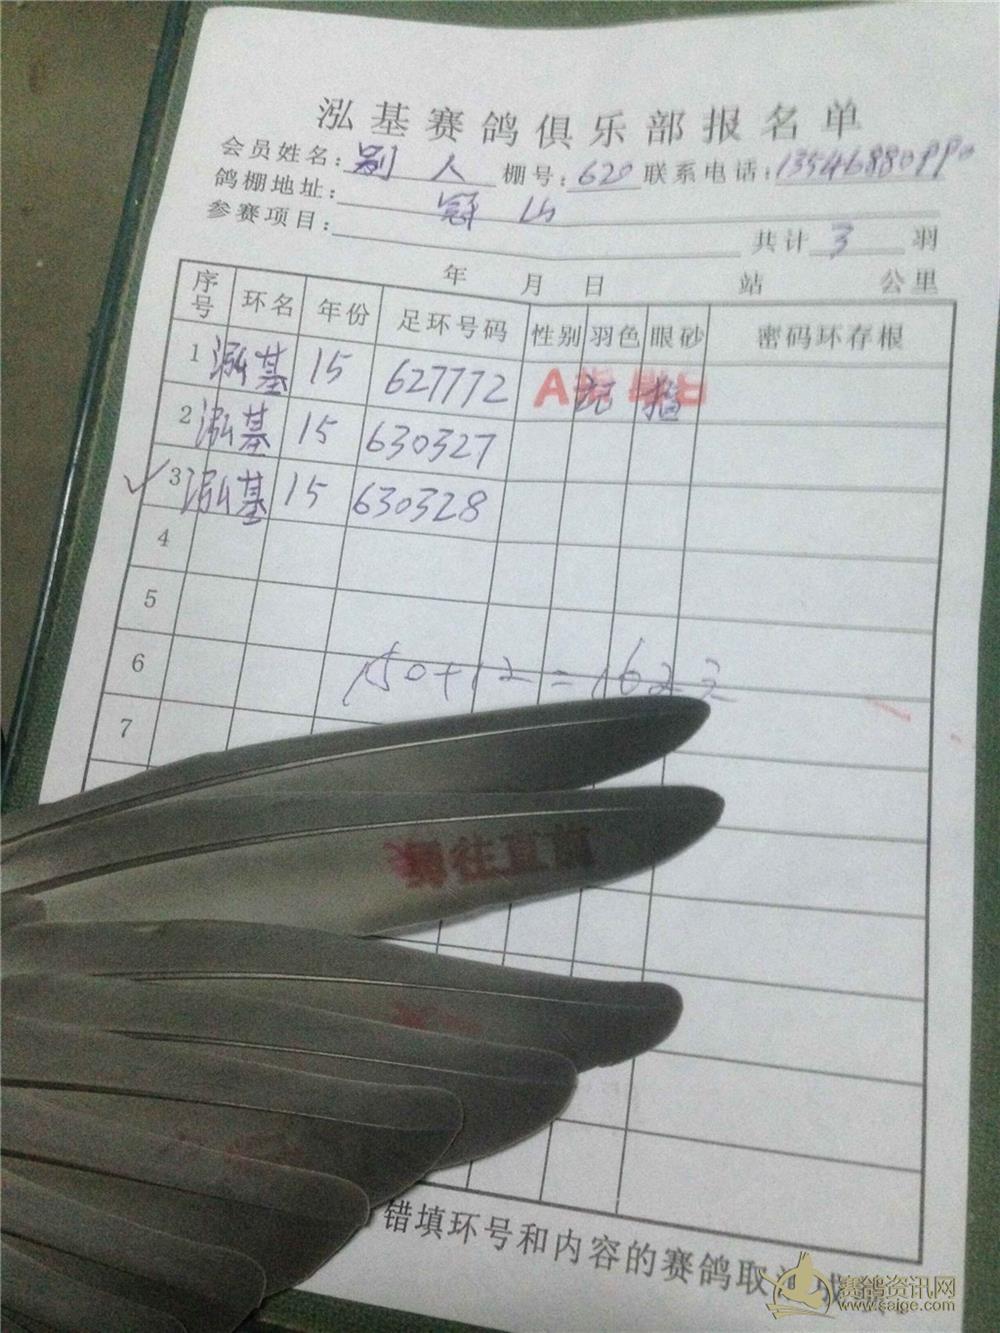 泓基赛鸽俱乐部报名单
会员姓名: 别人 棚号: 620 联系电话: 13546880990
鸽棚地址: 冠山
参赛项目: 共计 3 羽
年 月 日 站 公里
序号 环名 年份 足环号码 性别 羽色 眼砂 密码环存根
1 泓基 15 627772 A 指
2 泓基 15 630327
✓ 3 泓基 15 630328
4
5
6 150+12=162
7
往直前
错填环号和内容的赛鸽取消成
赛鸽资讯网
www.saige.com